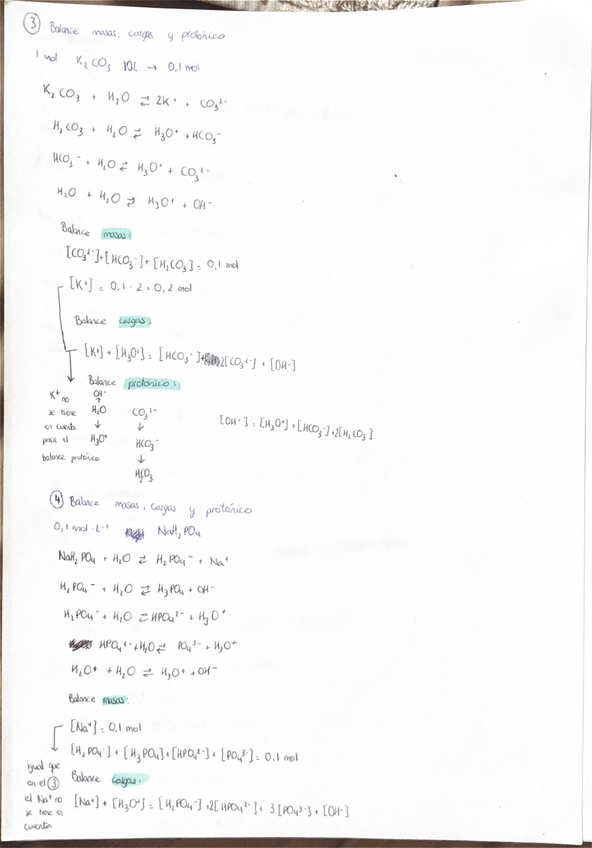 ③ Balance masas, cargas y protónico
1 mol K₂CO₃ 10L → 0,1 mol
K₂CO₃ + H₂O ⇄ 2K⁺ + CO₃²⁻
H₂CO₃ + H₂O ⇄ H₃O⁺ + HCO₃⁻
HCO₃⁻ + H₂O ⇄ H₃O⁺ + CO₃²⁻
H₂O + H₂O ⇄ H₃O⁺ + OH⁻
Balance masas:
[CO₃²⁻]+[HCO₃⁻]+[H₂CO₃] = 0,1 mol
[K⁺] = 0,1 · 2 = 0,2 mol
Balance cargas:
[K⁺] + [H₃O⁺] = [HCO₃⁻]+2[CO₃²⁻] + [OH⁻]
Balance protónico:
K⁺ no
se tiene
en cuenta
para el
balance protónico
OH⁻
↑
H₂O
↓
H₃O⁺
CO₃²⁻
↓
HCO₃⁻
↓
[OH⁻] = [H₃O⁺]+[HCO₃⁻]+2[H₂CO₃]
④ Balance masas, cargas y protónico
0,1 mol·L⁻¹ NaH₂PO₄
NaH₂PO₄ + H₂O ⇄ H₂PO₄⁻ + Na⁺
H₂PO₄⁻ + H₂O ⇄ H₃PO₄ + OH⁻
H₂PO₄⁻ + H₂O ⇄ HPO₄²⁻ + H₃O⁺
HPO₄²⁻+H₂O ⇄ PO₄³⁻ + H₃O⁺
H₂O⁺ + H₂O ⇄ H₃O⁺ + OH⁻
Balance masas:
[Na⁺] = 0,1 mol
[H₂PO₄⁻] + [H₃PO₄]+[HPO₄²⁻]+ [PO₄³⁻] = 0,1 mol
igual que
en el ③
el Na⁺ no
se tiene en
cuenta
Balance cargas:
[Na⁺] + [H₃O⁺] = [H₂PO₄⁻]+2[HPO₄²⁻]+ 3[PO₄³⁻]+ [OH⁻]